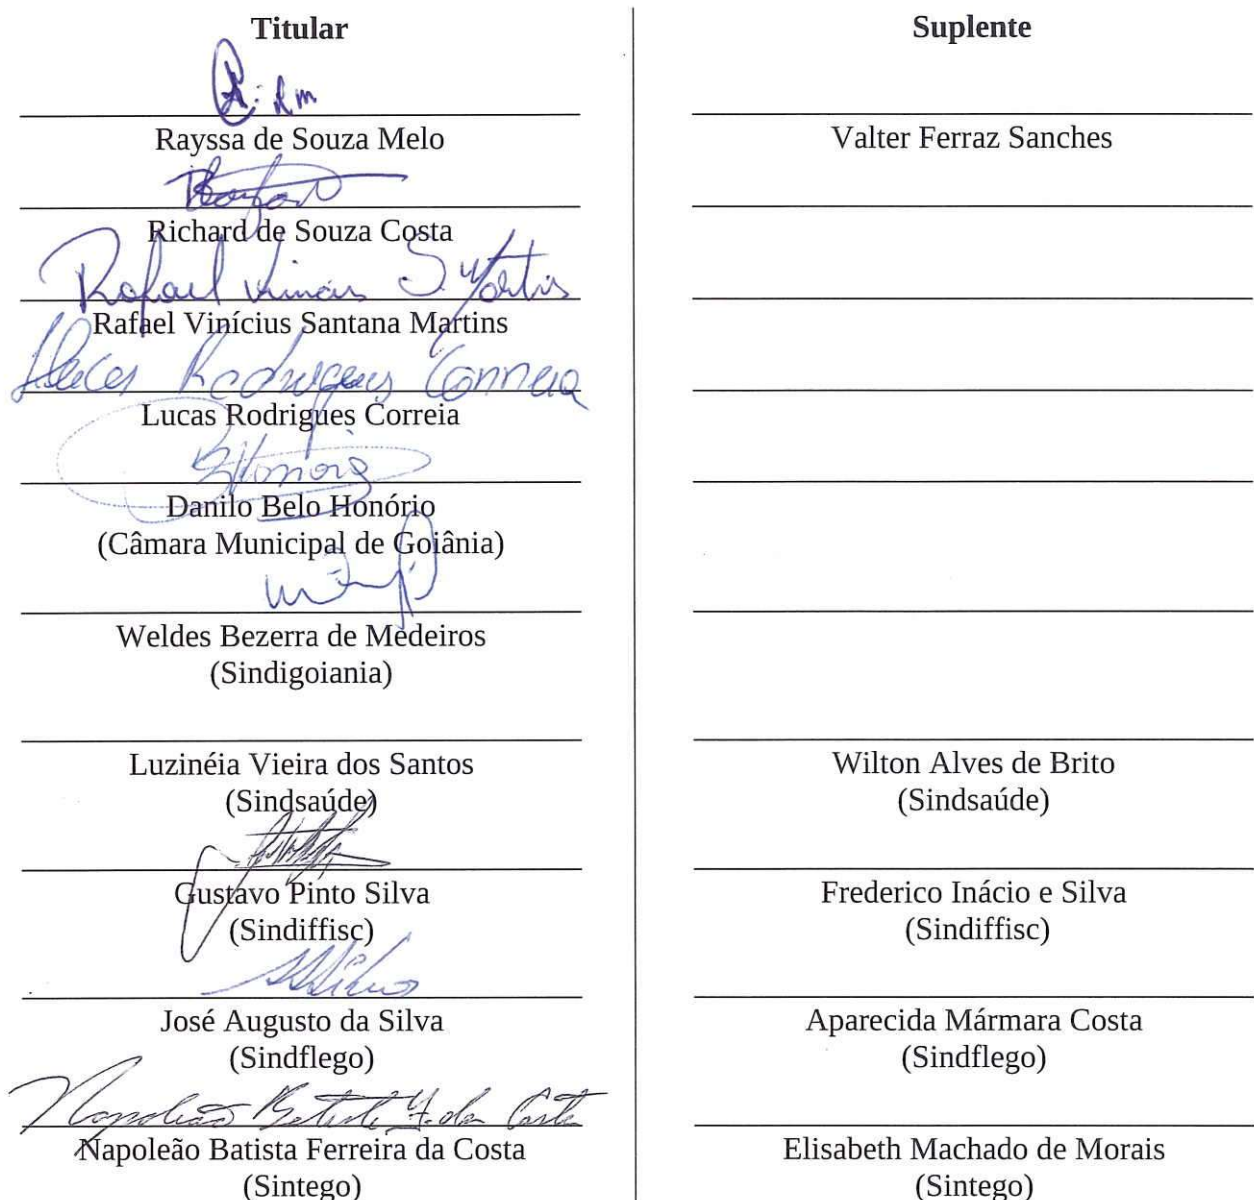 Titular
Rayssa de Souza Melo
Richard de Souza Costa
Rafael Vinicius S. Martins
Rafael Vinícius Santana Martins
Lucas Rodrigues Correia
Lucas Rodrigues Correia
BHonório
Danilo Belo Honório
(Câmara Municipal de Goiânia)
Weldes Bezerra de Medeiros
(Sindigoiania)
Luzinéia Vieira dos Santos
(Sindsaúde)
Gustavo Pinto Silva
(Sindiffisc)
José Augusto da Silva
(Sindflego)
Napoleão Batista F. da Costa
Napoleão Batista Ferreira da Costa
(Sintego)
Suplente
Valter Ferraz Sanches
Wilton Alves de Brito
(Sindsaúde)
Frederico Inácio e Silva
(Sindiffisc)
Aparecida Mármara Costa
(Sindflego)
Elisabeth Machado de Morais
(Sintego)